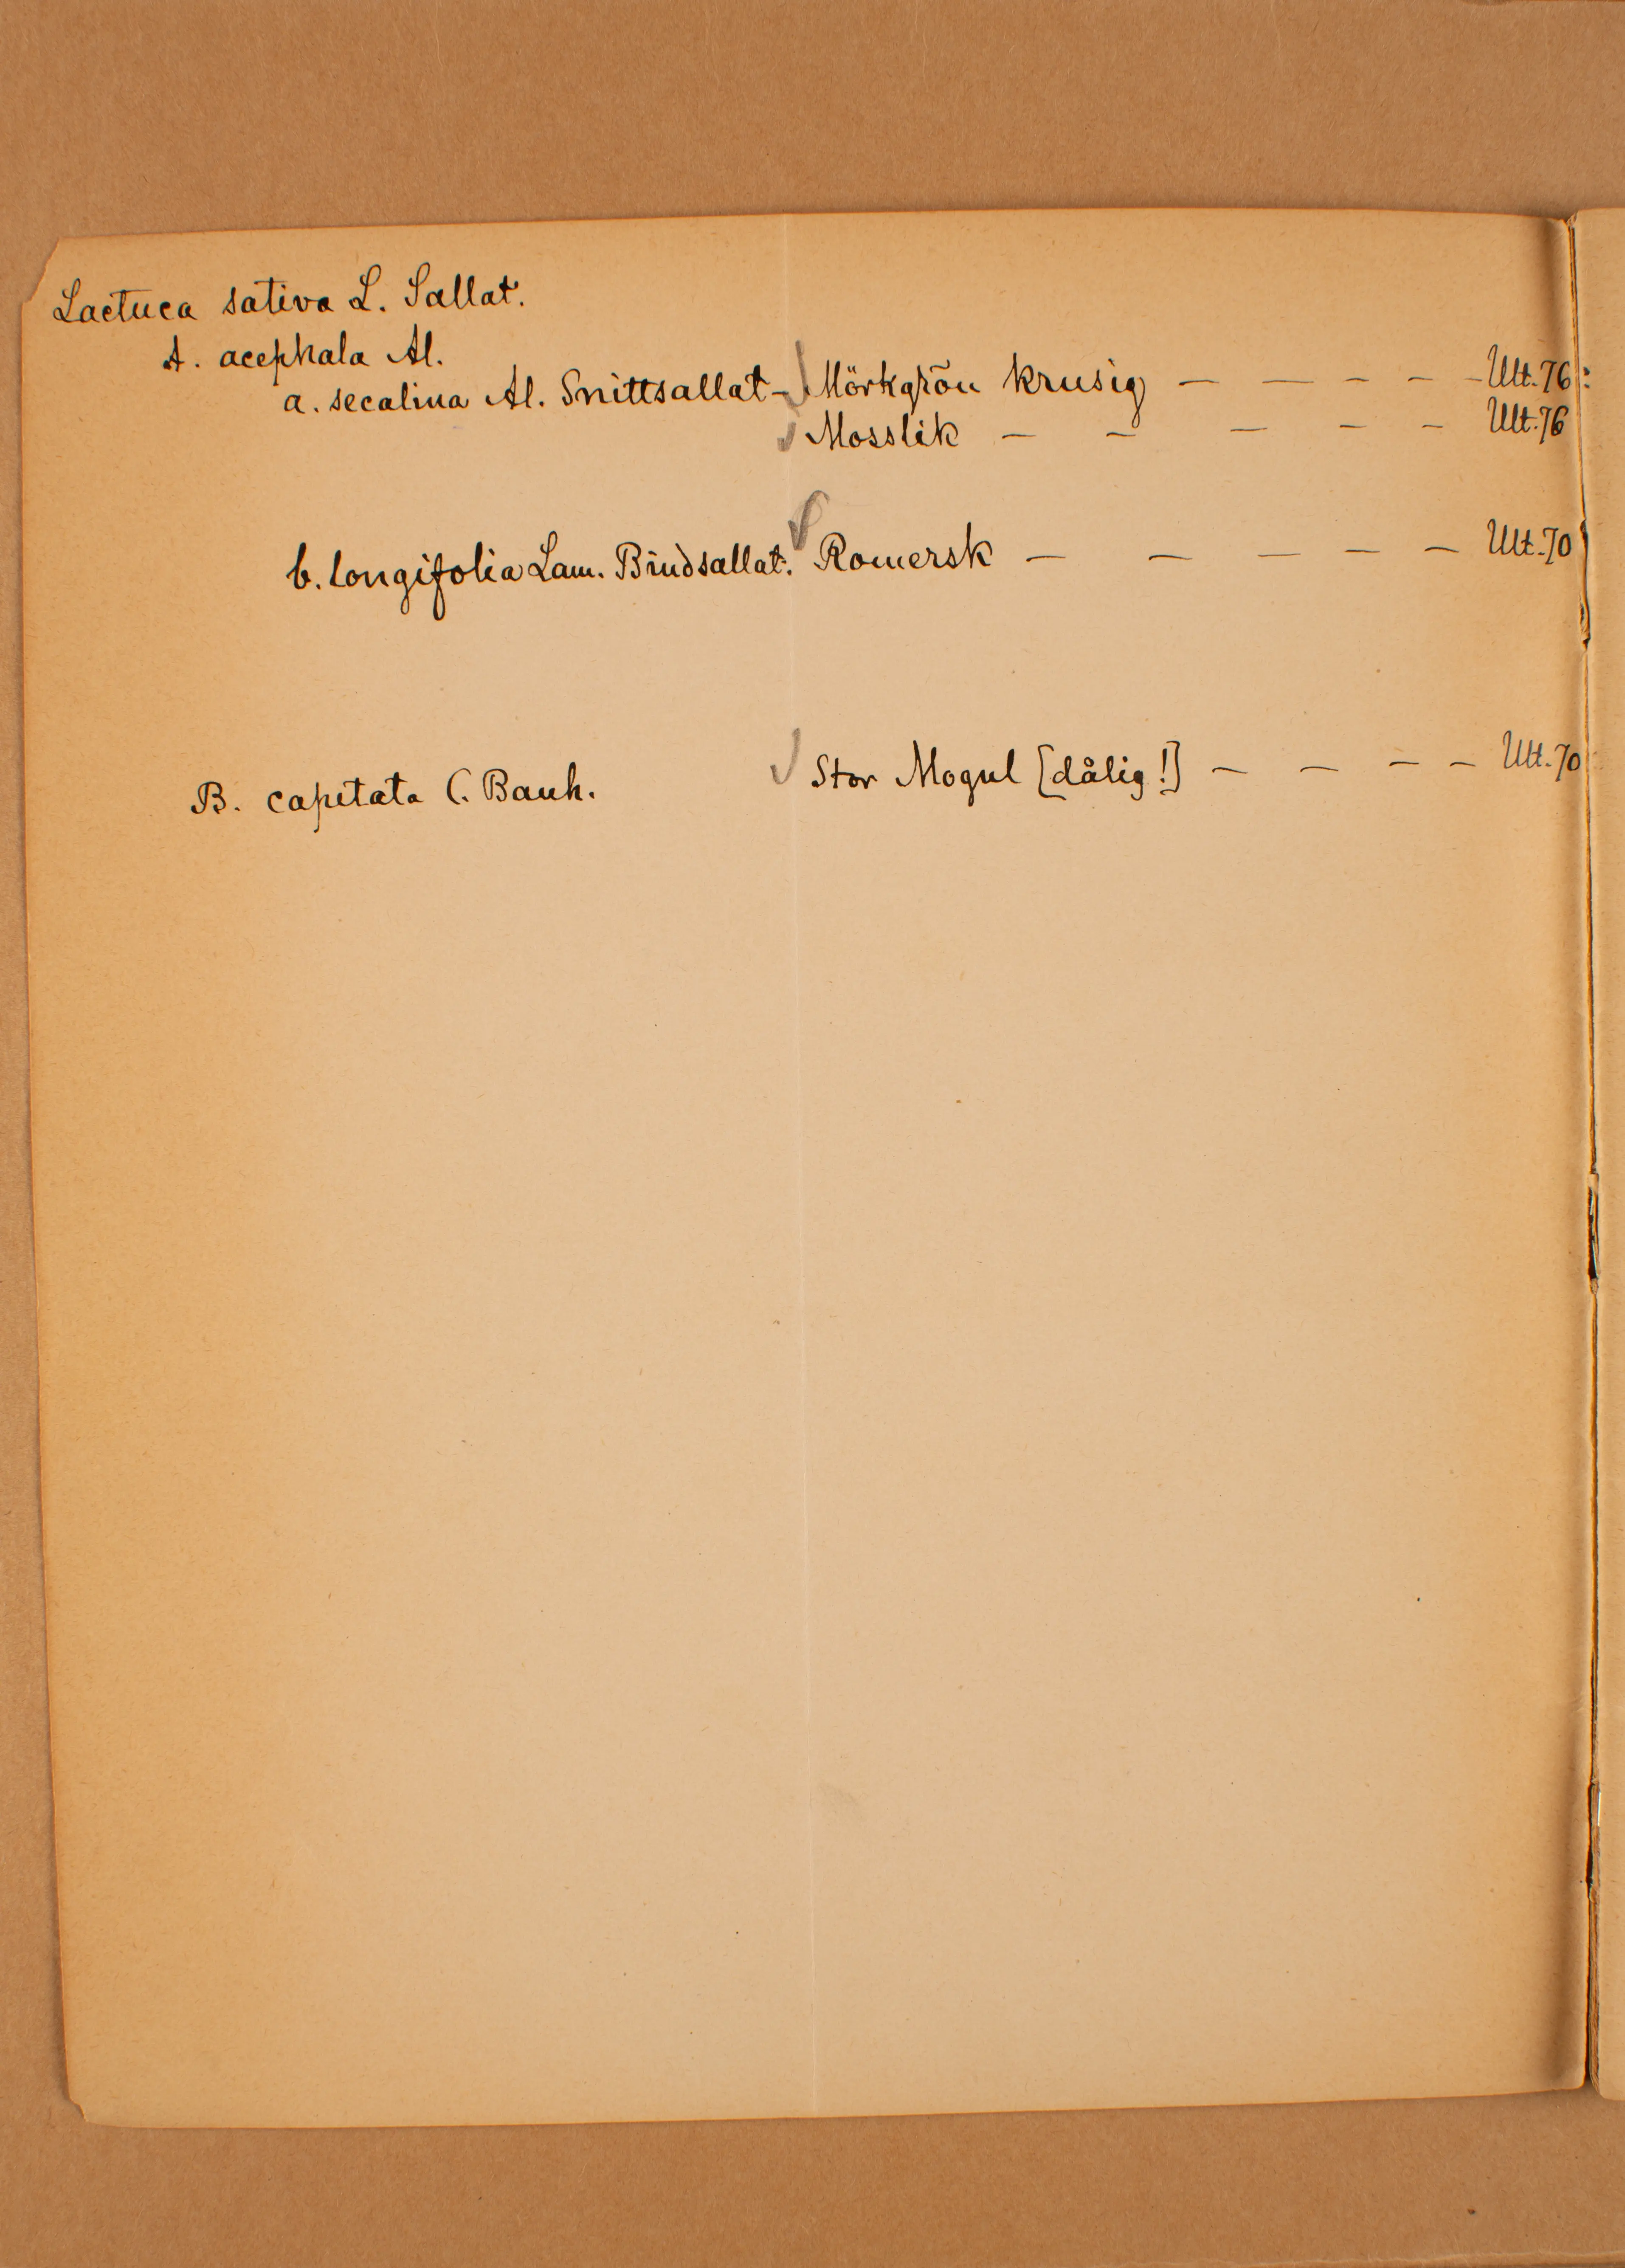 Lactuca sativa L. Sallat.
A. acephala Al.
a. secalina Al. Snittsallat - Mörkgrön krusig — — — — - Ult. 76:
Mosslik — — — — — Ult. 76
b. longifolia Lam. Bindsallat. Romersk — — — — — Ult. 70
B. capitata C. Bauh. Stor Mogul [dålig!] — — — — Ult. 70